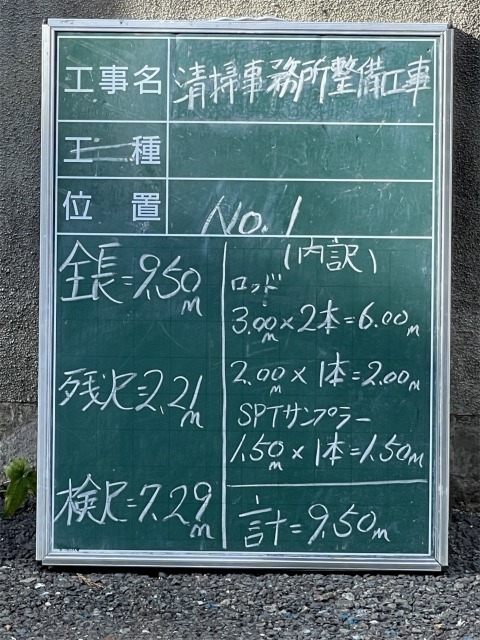 工事名 清掃事務所整備工事
工種
位置 No.1
全長=9.50m
残尺=2.21m
検尺=7.29m
(内訳)
ロッド
3.00m×2本=6.00m
2.00m×1本=2.00m
SPTサンプラー
1.50m×1本=1.50m
計=9.50m